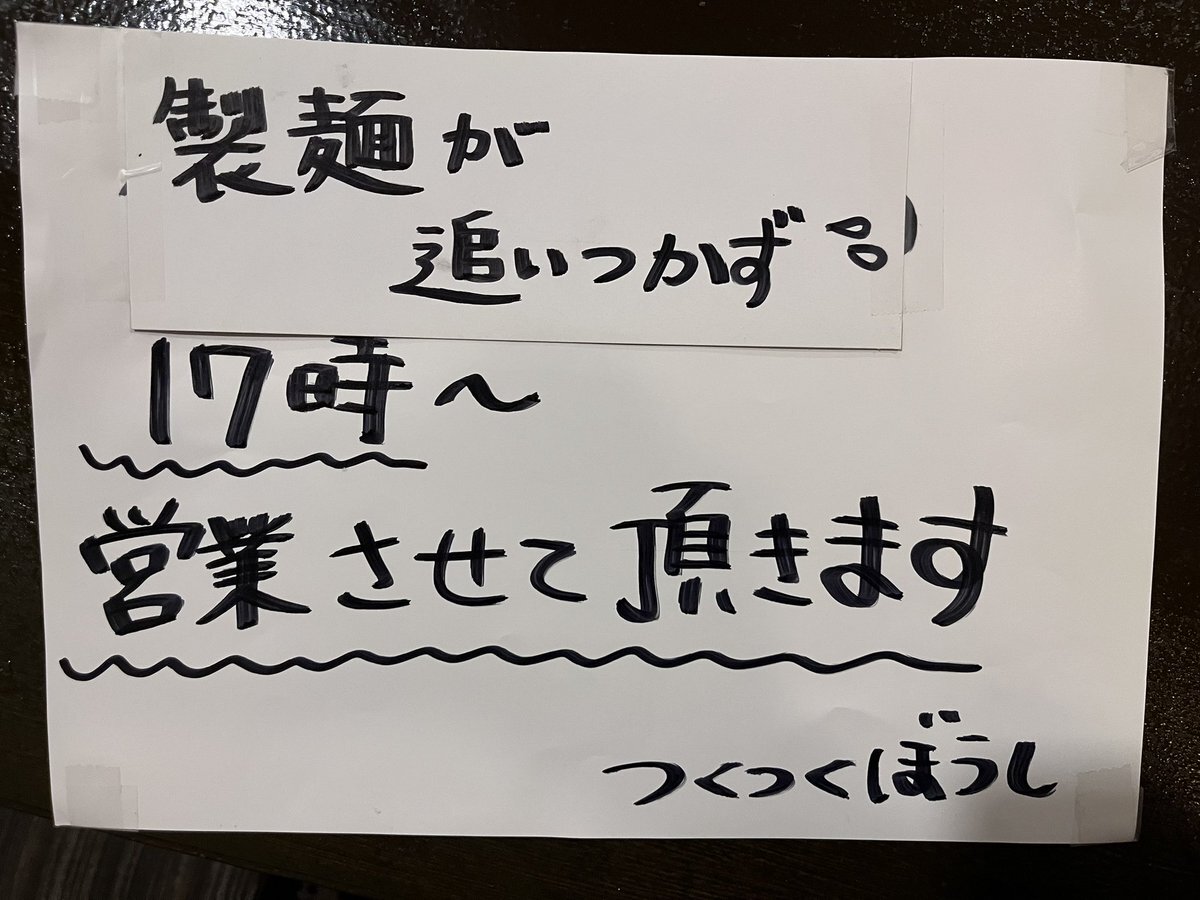 製麺が
追いつかず
17時～
営業させて頂きます
つくつくぼうし